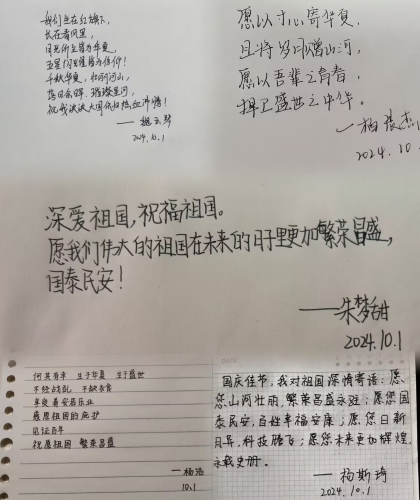 我们生在红旗下,
长在春风里,
目光所至皆为华夏,
五星闪耀皆为信仰!
千秋华夏, 壮丽河山,
落日余晖, 璀璨星河,
祝我泱泱大国依旧热血沸腾!
2024.10.1
愿以寸心寄华夏,
且将岁月赠山河,
愿以吾辈之青春,
捍卫盛世之中华。
——杨张杰
2024.10.1
深爱祖国,祝福祖国。
愿我们伟大的祖国在未来的日子里更加繁荣昌盛,
国泰民安!
——朱梦甜
2024.10.1
何其有幸 生于华夏 生于盛世
不经战乱 不缺衣食
享受着安居乐业
感恩祖国的庇护
见证百年
祝愿祖国 繁荣昌盛
——杨浩
10.1
DATE
国庆佳节,我对祖国深情寄语:愿
您山河壮丽,繁荣昌盛永驻;愿您国
泰民安,百姓幸福安康;愿您日新
月异,科技腾飞;愿您未来更加辉煌,
永载史册。
——杨斯琦
2024.10.1